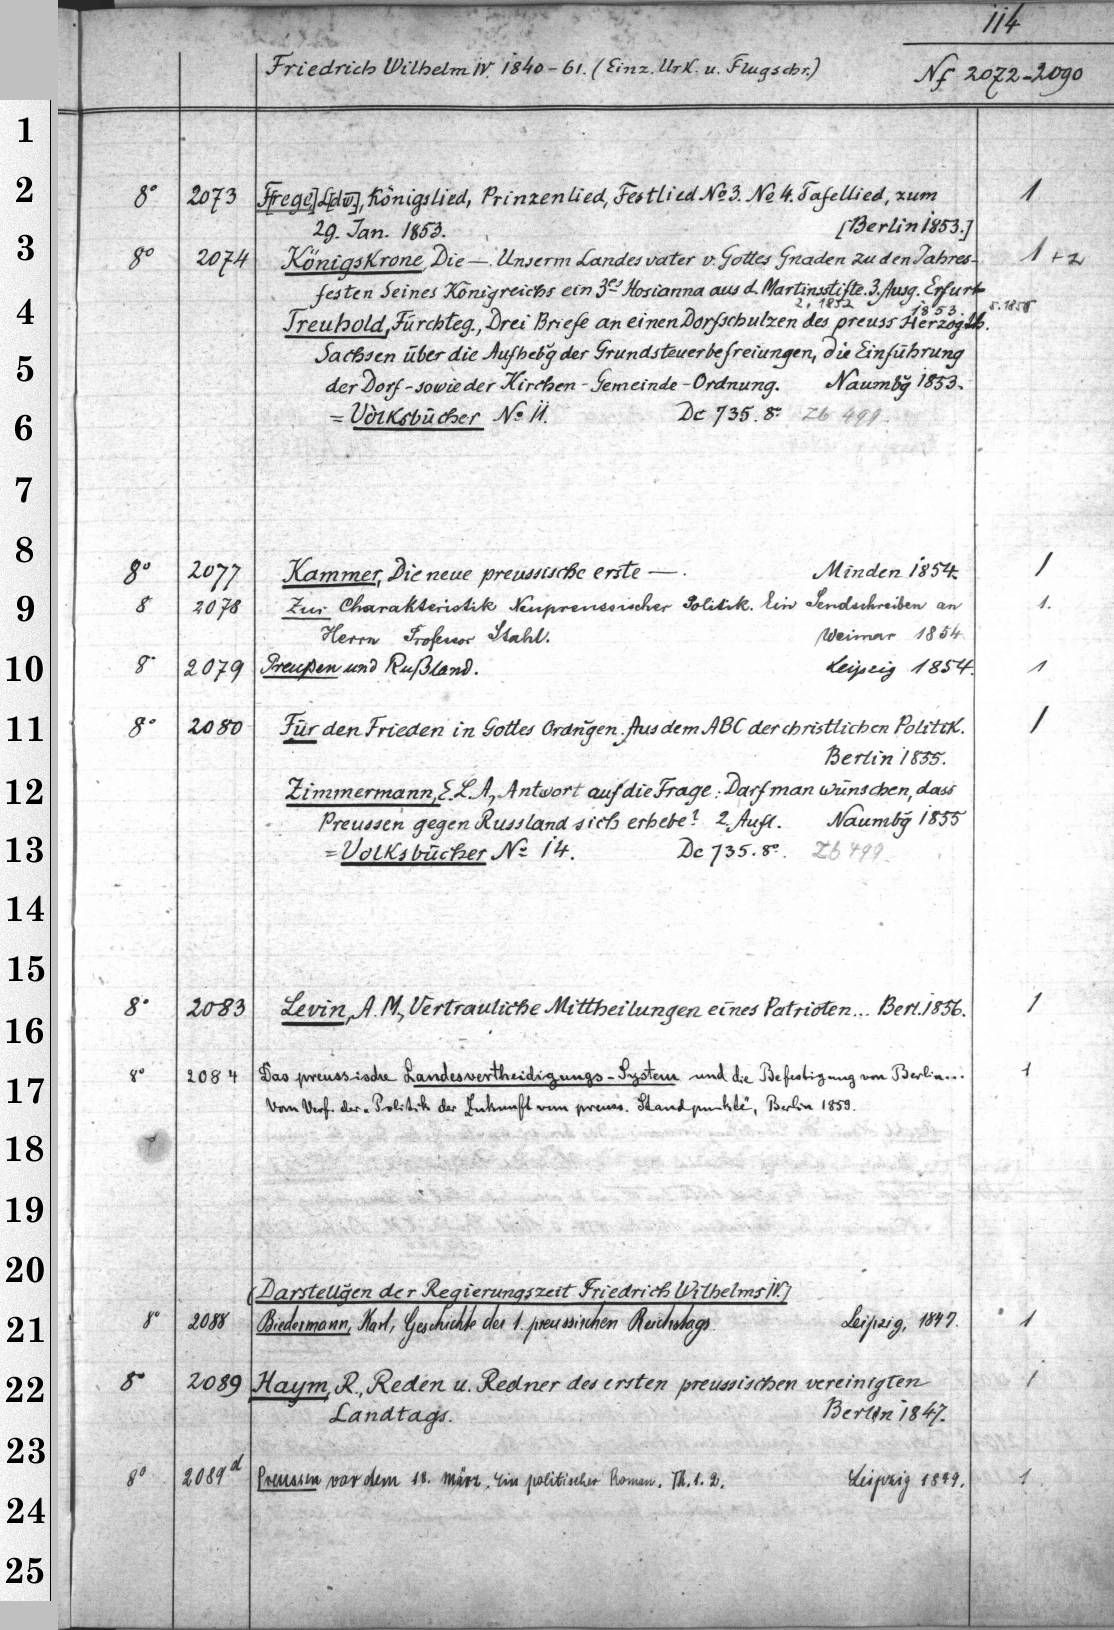 114
Friedrich Wilhelm IV. 1840-61. (Einz. Urk. u. Flugschr.)
Nf 2072-2090
8° 2073 F[rege,] L[dw], Königslied, Prinzenlied, Festlied No 3. No 4. Tafellied, zum 1
29. Jan. 1853. [Berlin 1853.]
8° 2074 Königskrone, Die —. Unserm Landesvater v. Gottes Gnaden zu den Jahres- 1 + 2
festen Seines Königreichs ein 3es Hosianna aus d. Martinsstifte. 3. Ausg. Erfurt
2, 1852 1853. 5. 1855
Treuhold, Fürchteg., Drei Briefe an einen Dorfschulzen des preuss Herzogth.
Sachsen über die Aufhebg der Grundsteuerbefreiungen, die Einführung
der Dorf- sowie der Kirchen-Gemeinde-Ordnung. Naumbg 1853.
= Volksbücher No 11. Dc 735. 8° Zb 499.
8° 2077 Kammer, Die neue preussische erste —. Minden 1854. 1
8 2078 Zur Charakteristik Neupreussischer Politik. Ein Sendschreiben an 1.
Herrn Professor Stahl. Weimar 1854
8° 2079 Preußen und Rußland. Leipzig 1854. 1
8° 2080 Für den Frieden in Gottes Ordngen. Aus dem ABC der christlichen Politik. 1
Berlin 1855.
Zimmermann, E. L. A., Antwort auf die Frage: Darf man wünschen, dass
Preussen gegen Russland sich erhebe? 2. Aufl. Naumbg 1855
= Volksbücher No 14. Dc 735. 8°. Zb 499.
8° 2083 Levin, A. M., Vertrauliche Mittheilungen eines Patrioten... Berl. 1856. 1
8° 2084 Das preussische Landesvertheidigungs-System und die Befestigung von Berlin... 1
Vom Verf. der „Politik der Zukunft vom preuss. Standpunkte", Berlin 1859.
(Darstellgen der Regierungszeit Friedrich Wilhelms IV.)
8° 2088 Biedermann, Karl, Geschichte des 1. preussischen Reichstags. Leipzig, 1847. 1
8° 2089 Haym, R., Reden u. Redner des ersten preussischen vereinigten 1
Landtags. Berlin 1847.
8° 2089d Preussen vor dem 18. März. Ein politischer Roman. Th. 1. 2. Leipzig 1849. 1
1
2
3
4
5
6
7
8
9
10
11
12
13
14
15
16
17
18
19
20
21
22
23
24
25